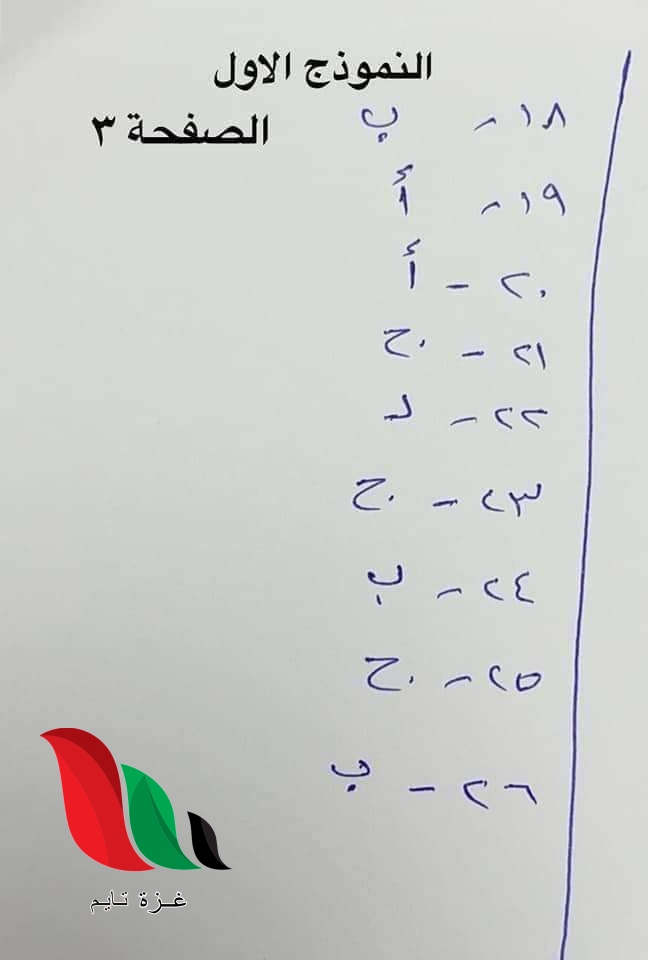 النموذج الاول
الصفحة ٣
١٨- ب
١٩- أ
٢٠- أ
٢١- ج
٢٢- د
٢٣- ج
٢٤- ب
٢٥- ج
٢٦- ب
غزة تايم